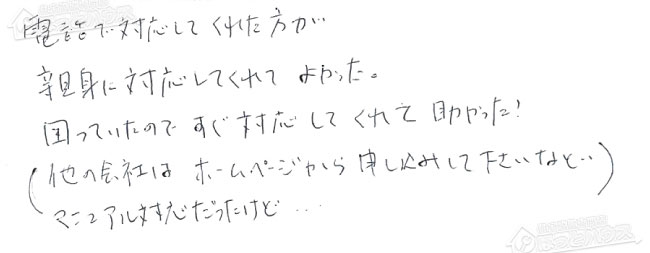 電話で対応してくれた方が
親身に対応してくれて よかった。
困っていたので すぐ対応してくれて 助かった!
(他の会社は ホームページから 申し込みして下さいなど‥
マニュアル対応だったけど …)